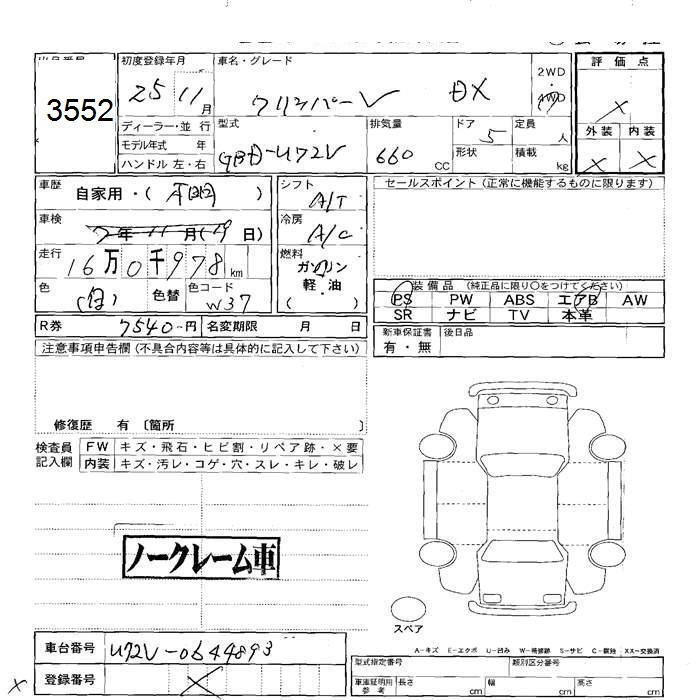 3552
初度登録年月
25 11 月
車名・グレード
クリッパーV DX
2WD
4WD
評価点
X
外装 内装
X X
ディーラー・並行
モデル年式 年
ハンドル 左・右
型式
GBD-U72V
排気量
660 CC
ドア 5
形状
定員 人
積載 kg
車歴
自家用・( )
車検
2年11月(29日)
走行
16万0千978km
色
(白)
色替
色コード
W37
シフト
A/T
冷房
A/C
燃料
ガソリン
軽・油
( )
R券
7540-円
名変期限 月 日
セールスポイント(正常に機能するものに限ります)
装備品(純正品に限り○をつけてください)
PS PW ABS エアB AW
SR ナビ TV 本革
新車保証書
有・無
後日品
注意事項申告欄(不具合内容等は具体的に記入して下さい)
修復歴 有〔箇所 〕
検査員
記入欄
FW キズ・飛石・ヒビ割・リペア跡・×要
内装 キズ・汚レ・コゲ・穴・スレ・キレ・破レ
ノークレーム車
スペア
A-キズ E-エクボ U-凹み W-補修跡 S-サビ C-腐蝕 XX-交換済
車台番号
U72V-0644893
登録番号
X
X
型式指定番号
類別区分番号
車庫証明用
参考
長さ cm 幅 cm 高さ cm